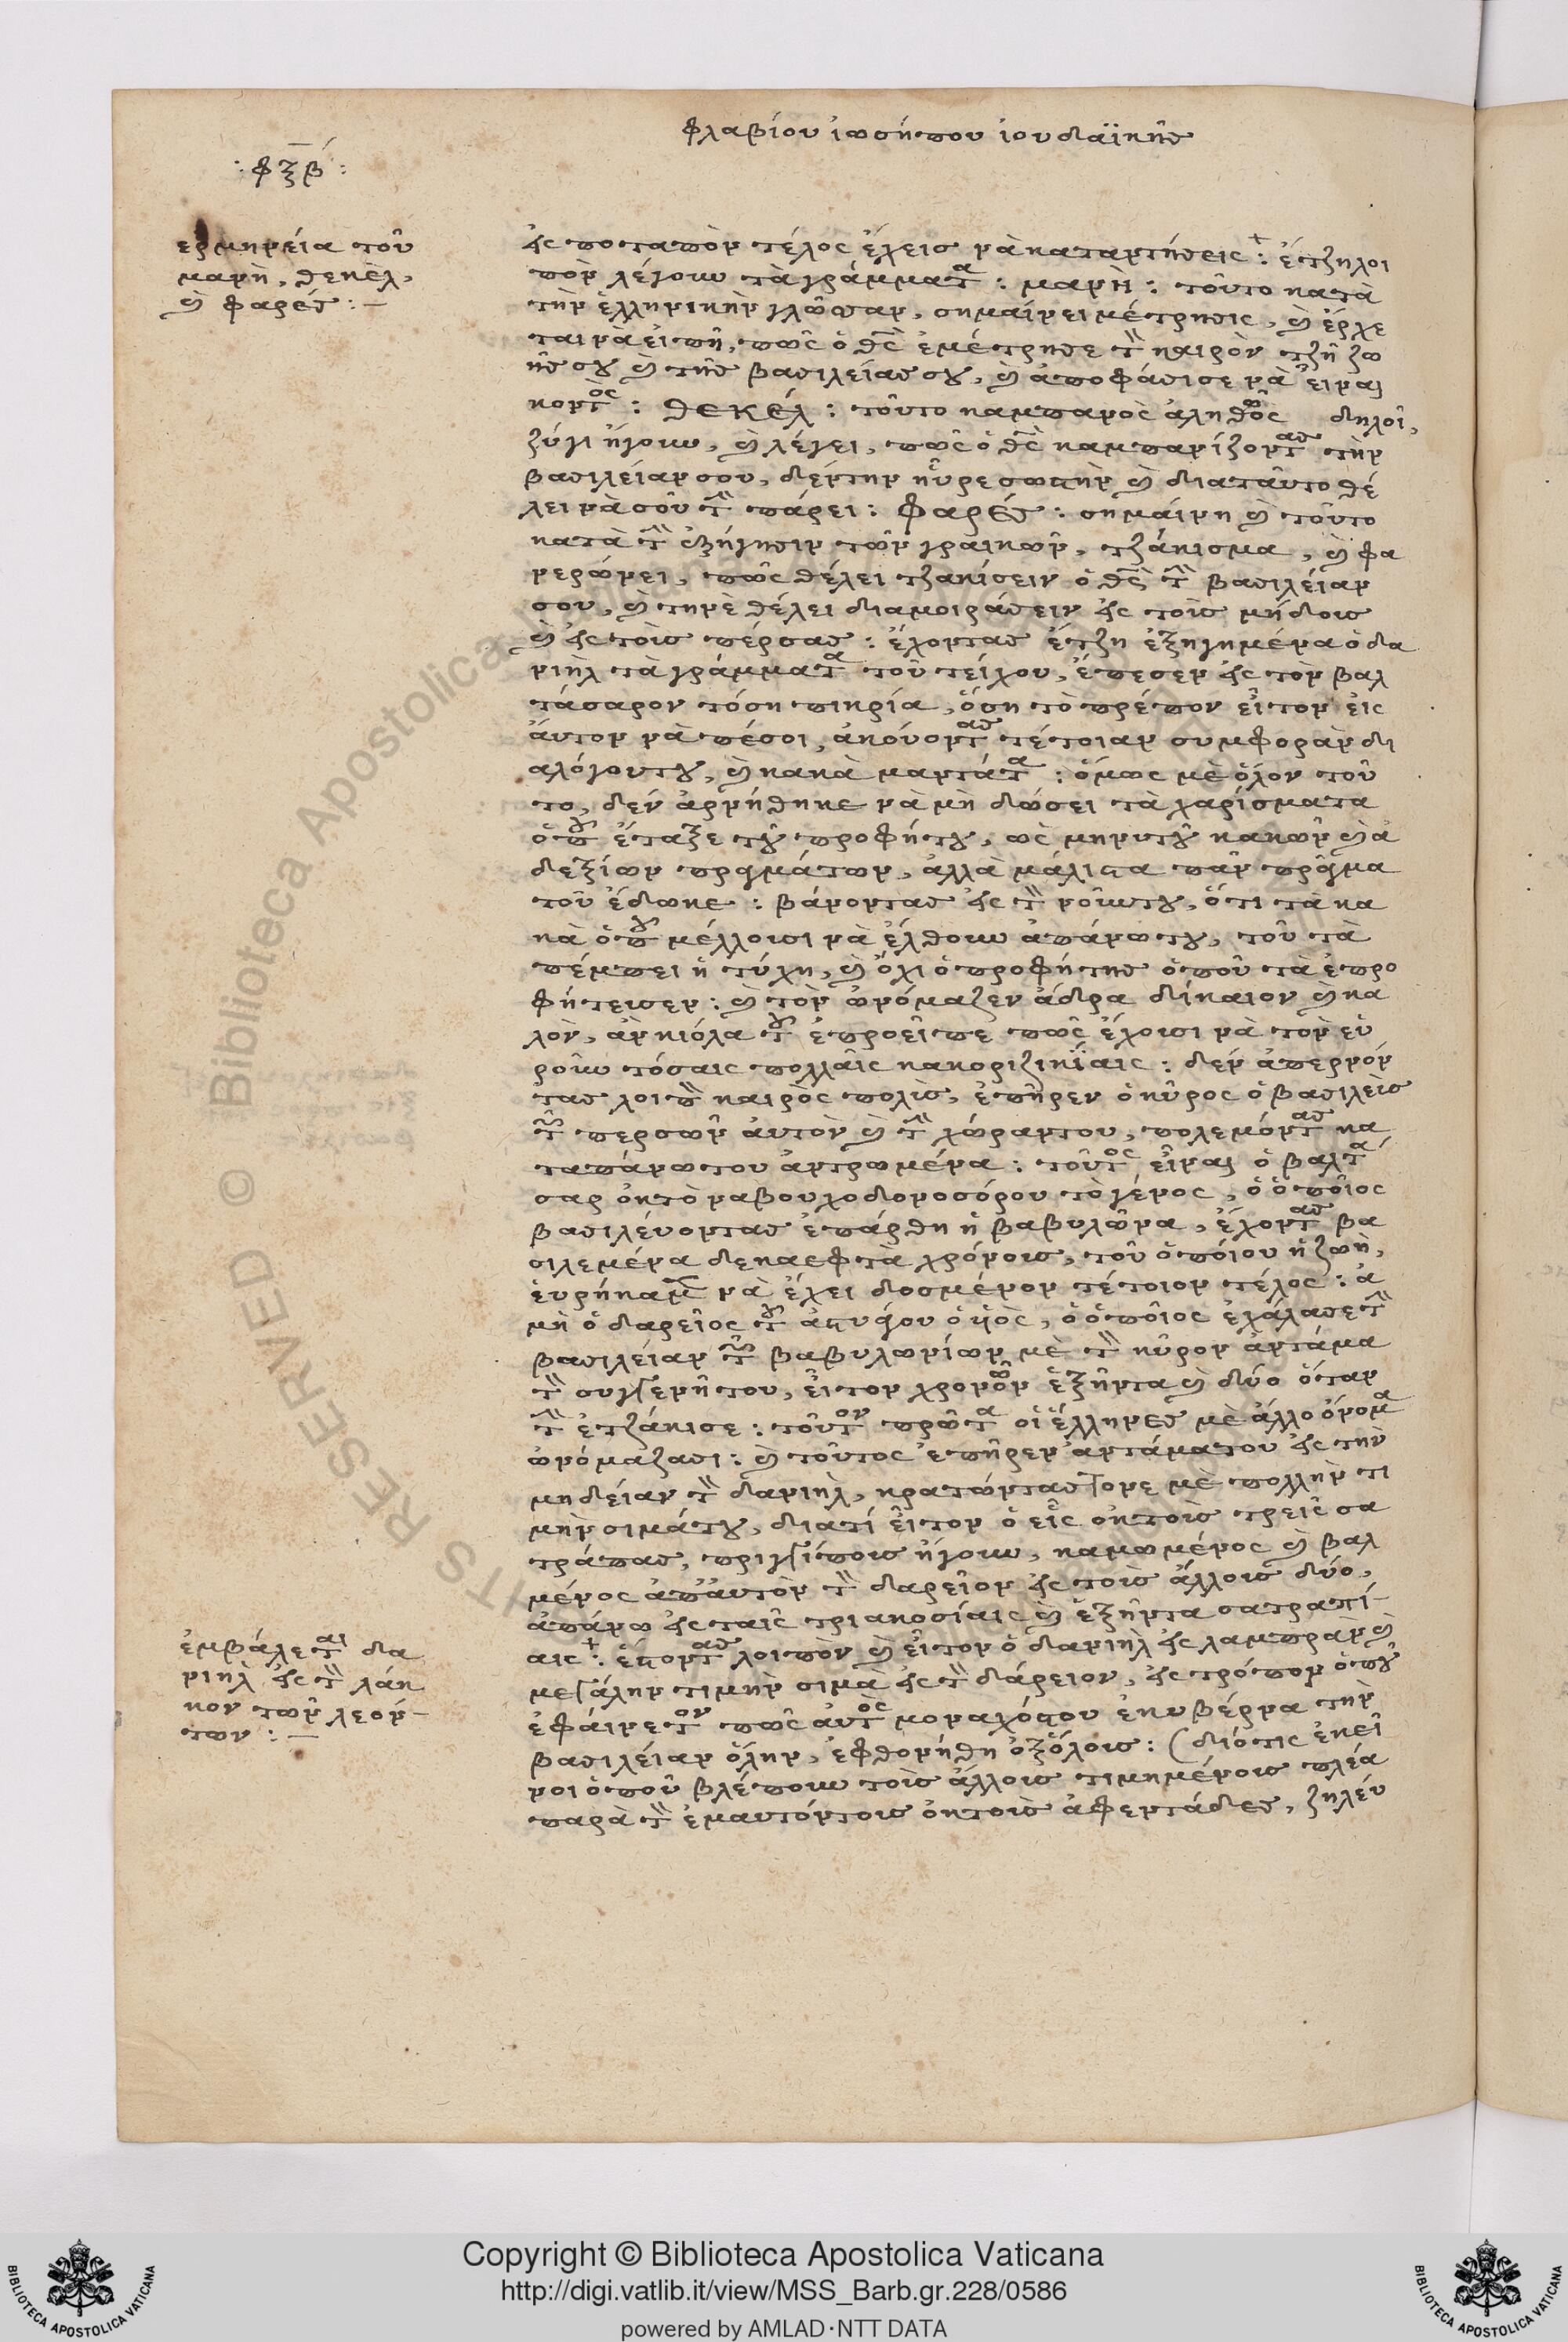 φλαβίου ἰωσήπου ἰουδαϊκῆσ
: φξβ :
ερμηνεία τοῦ
μανὴ, θεκὲλ,
ϗ φαρές : —
εἰς ποταπὸν τέλος ἔχεισ νὰ καταρτήσεις : ἔτζη λοι
πὸν λέγουν τὰ γράμματα : μανὴ : τοῦτο κατὰ
τὴν ἑλληνικὴν γλῶσσαν, σημαίνει μέτρησις, ϗ ἔρχε
ται νὰ εἰπῇ, πῶς ὁ θς ἐμέτρησε τὸν καιρὸν τζῆ ζω
ῆσ σου ϗ τῆσ βασιλείασ σου, ϗ ἀποφάσισε νὰ εἶναι
κοντὸς : θεκέλ : τοῦτο καμπανὸς ἀληθῶς δηλοῖ,
ζύγι ἤγουν, ϗ λέγει, πῶς ὁ θς καμπανίζοντασ τὴν
βασιλείαν σου, δέν την ηὗρε σωστὴν ϗ διαταῦτο θέ
λει νὰ σοῦ τὴν πάρει : φαρές : σημαίνη ϗ τοῦτο
κατὰ τὴν ἐξήγησιν τῶν γραικῶν, τζάκισμα, ϗ φα
νερώνει, πῶς θέλει τζακίσειν ὁ θς τὴν βασιλείαν
σου, ϗ τηνὲ θέλει διαμοιράσειν εἰς τοὺσ μήδουσ
ϗ εἰς τοὺσ πέρσασ : ἔχοντασ ἔτζη ἐξηγημένα ὁ δα
νιὴλ τὰ γράμματα τοῦ τείχου, ἔπεσεν εἰς τὸν βαλ
τάσαρον τόση πικρία, ὅση τὸ πρέπον εἶτον εἰς
ἄυτον νὰ πέσοι, ἀκούοντασ τέτοιαν συμφορὰν δι
αλόγουντου, ϗ κακὰ μαντάτα : ὅμως μὲ ὅλον τοῦ
το, δεν ἀρνήθηκε νὰ μὴ δώσει τὰ χαρίσματα
ὁποῦ ἔταξε τοῦ προφήτου, ὡς μηνυτοῦ κακῶν ϗ ἀ
δεξίων πραγμάτων, ἀλλὰ μάλιστα πᾶν πρᾶγμα
τοῦ ἔδωκε : βάνοντασ εἰς τὸν νοῦντου, ὅτι τα κα
κὰ ὁποῦ μέλλουσι νὰ ἔλθουν ἀπάνωτου, τοῦ τὰ
πέμπει ἡ τύχη, ϗ ὄχι ὁ προφήτησ ὁποῦ τὰ ἐπρο
φήτευσεν : ϗ τὸν ὠνόμαζεν ἄδρα δίκαιον ϗ κα
λὸν, ἀν κιόλα τοῦ ἐπροεῖπε πῶς ἔχουσι νὰ τὸν εὑ
ροῦν τόσαις πολλαῖς κακοριζικίαις : δεν ἀπερνόν
τασ λοιπὸν καιρὸς πολὺσ, ἐπῆρεν ὁ κῦρος ὁ βασιλεὺσ
τῶν περσῶν ἀυτὸν ϗ τὴν χώραντου, πολεμόντασ κα
ταπάνωτου ἀντρωμένα : τοῦτος εἶναι ὁ βαλτά
σαρ ὀκτὸ ναβουχοδονοσόρου τὸ γένος, ὁ ὁποῖος
βασιλέυοντασ ἐπάρθη ἡ βαβυλῶνα, ἔχοντασ βα
σιλεμένα δεκαεφτὰ χρόνουσ, τοῦ ὁποίου ἡ ζωὴ,
ἑυρήκαμεν νὰ ἔχει δοσμένον τέτοιον τέλος : ἀ
μὴ ὁ δαρεῖος τοῦ ἀστυάγου ὁ ὑιὸς, ὁ ὁποῖος ἐχάλασε τὴν
βασιλείαν τῶν βαβυλωνίων μὲ τὸν κῦρον ἀντάμα
τὸν συγγενῆτου, εἶτον χρονῶν ἑξῆντα ϗ δύο ὅταν
τὴν ἐτζάκισε : τοῦτον πρῶτα οἱ ἕλληνεσ μὲ ἄλλο ὄνομα
ὠνόμαζασι : ϗ τοῦτος ἐπῆρεν ἀντάματου εἰς τὴν
μηδείαν τὸν δανιὴλ, κρατώντασ τονε μὲ πολλὴν τι
μὴν σιμάτου, διατί εἶτον ὁ εἷς ὀκτοὺσ τρεῖς σα
τράπασ, πριγγίπουσ ἤγουν, καμωμένος ϗ βαλ
μένος ἀπ' ἀυτὸν τὸν δαρεῖον εἰς τοὺσ ἄλλουσ δύο,
ἀπάνω εἰς ταῖς τριακοσίαις ϗ ἑξῆντα σατραπί-
αις : ἔστοντασ λοιπὸν ϗ εἶτον ὁ δανιὴλ εἰς λαμπρὰν ϗ
μεγάλην τιμὴν σιμὰ εἰς τὸν δάρειον, εἰς τρόπον ὁποῦ
ἐφαίνετον πῶς ἀυτὸς μοναχόστου ἐκυβέρνα τὴν
βασιλείαν ὅλην, ἐφθονήθη ὀξόλουσ : (διότις ἐκεῖ
νοι ὁποῦ βλέπουν τοὺσ ἄλλουσ τιμημένουσ πλέα
παρὰ τὸν ἐμαυτόντουσ ὀκτοὺσ ἀφεντάδεσ, ζηλέυ
ἐμβάλεται δα
νιὴλ εἰς τὸν λάκ
κον τῶν λεόν-
των : —
Copyright © Biblioteca Apostolica Vaticana
http://digi.vatlib.it/view/MSS_Barb.gr.228/0586
powered by AMLAD·NTT DATA